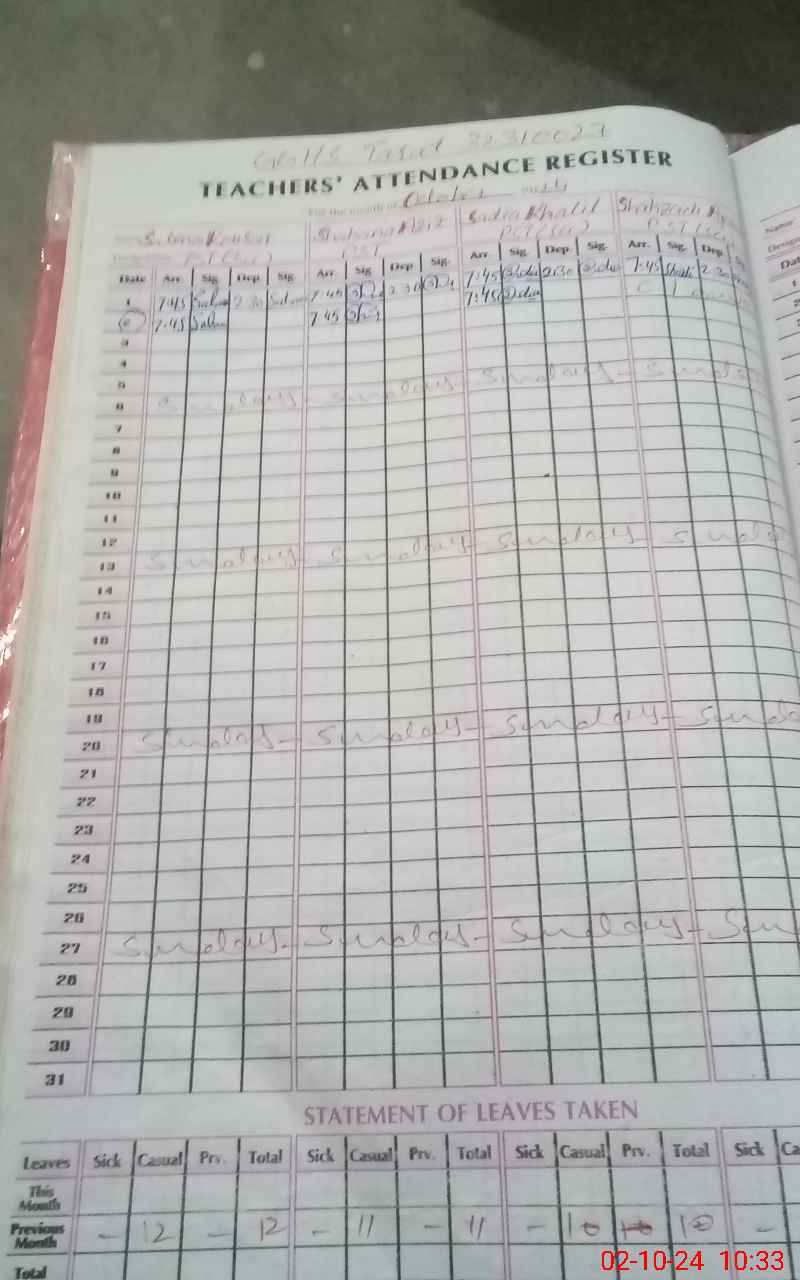 TEACHERS' ATTENDANCE REGISTER
For the month of October
Shabana Aziz Sadia Khalil Shahzadi
PST
Date Arr. Sig. Dep. Sig. Arr. Sig. Dep. Sig. Arr. Sig. Dep. Sig. Arr. Sig. Dep.
1 7:45 2:30 7:45 2:30 7:45 2:30 7:45 2:30
2 7:45 7:45 7:45
3
4
5
6 Sunday - Sunday - Sunday - Sunday
7
8
9
10
11
12
13 Sunday - Sunday - Sunday - Sunday
14
15
16
17
18
19
20 Sunday - Sunday - Sunday - Sunday
21
22
23
24
25
26
27 Sunday - Sunday - Sunday - Sun
28
29
30
31
STATEMENT OF LEAVES TAKEN
Leaves Sick Casual Prv. Total Sick Casual Prv. Total Sick Casual Prv. Total Sick Ca
This Month
Previous Month - 12 - 12 - 11 - 11 - 10 10 -
Total
02-10-24 10:33